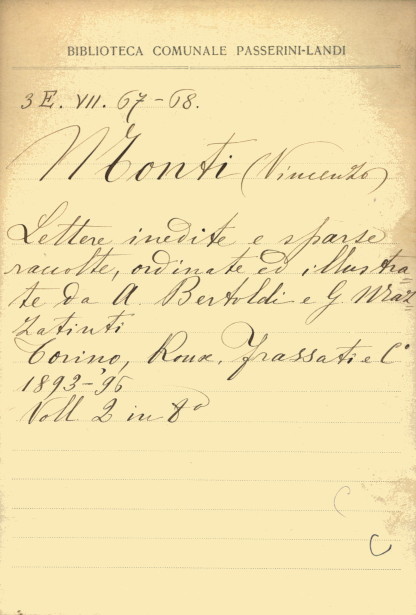 BIBLIOTECA COMUNALE PASSERINI-LANDI
3 E. VII. 67-68.
Monti (Vincenzo)
Lettere inedite e sparse
raccolte, ordinate ed illustra=
te da A Bertoldi e G Maz=
zatinti
Torino, Roux. Frassati e C°
1893-'96
Voll 2 in 8°